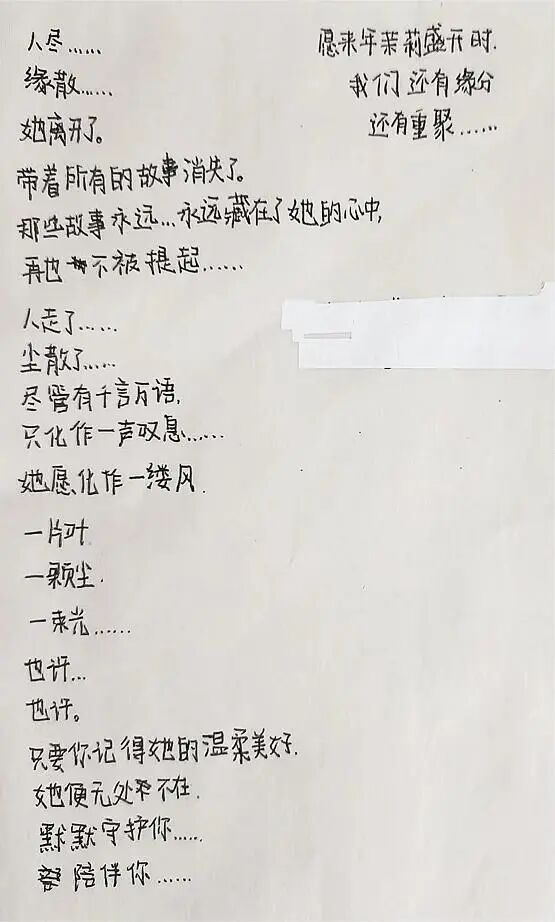 人尽……
缘散……
她离开了。
带着所有的故事消失了。
那些故事永远…永远藏在了她的心中,
再也不被提起……
人走了……
尘散了……
尽管有千言万语,
只化作一声叹息……
她愿化作一缕风.
一片叶.
一颗尘.
一束光……
也许…
也许。
只要你记得她的温柔美好.
她便无处不在.
默默守护你……
陪伴你……
愿来年茉莉盛开时.
我们还有缘分
还有重聚……